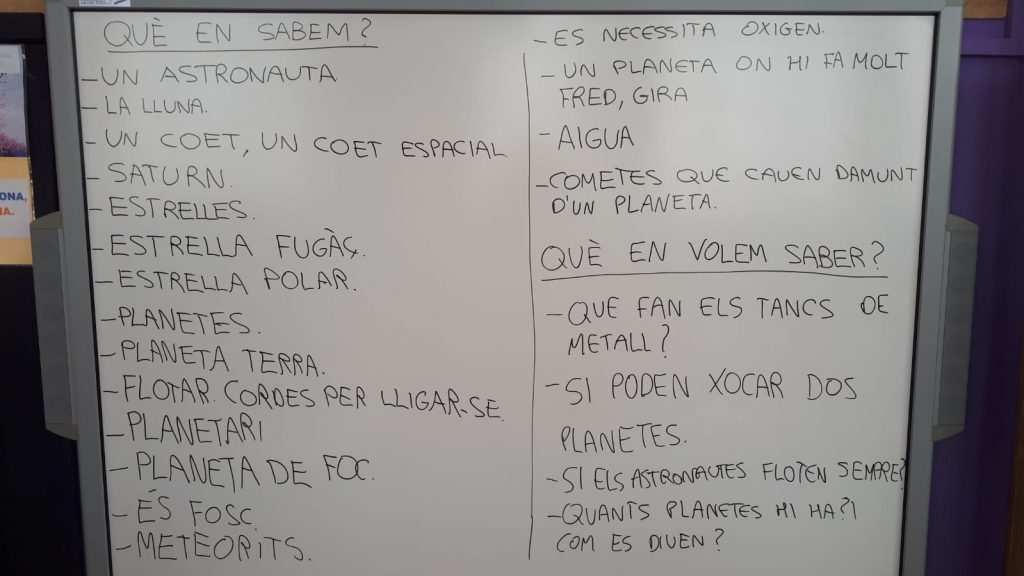 QUÈ EN SABEM?
-UN ASTRONAUTA
-LA LLUNA.
-UN COET, UN COET ESPACIAL.
-SATURN.
-ESTRELLES.
-ESTRELLA FUGAÇ.
-ESTRELLA POLAR.
-PLANETES.
-PLANETA TERRA.
-FLOTAR. CORDES PER LLIGAR-SE.
-PLANETARI
-PLANETA DE FOC.
-ÉS FOSC.
-METEORITS.
-ES NECESSITA OXIGEN.
-UN PLANETA ON HI FA MOLT
FRED, GIRA
-AIGUA
-COMETES QUE CAUEN DAMUNT
D'UN PLANETA.
QUÈ EN VOLEM SABER?
-QUE FAN ELS TANCS DE
METALL?
-SI PODEN XOCAR DOS
PLANETES.
-SI ELS ASTRONAUTES FLOTEN SEMPRE?
-QUANTS PLANETES HI HA? I
COM ES DIUEN?
ONA,
IA.